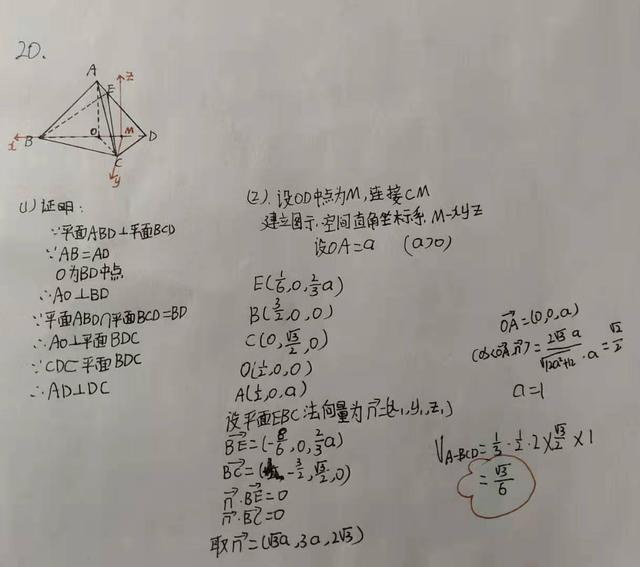 20.
A
E
z
x
B
O
M
D
C
y
(1) 证明:
∵平面ABD⊥平面BCD
∵AB=AD
O为BD中点
∴AO⊥BD
∵平面ABD∩平面BCD=BD
∴AO⊥平面BDC
∵CD⊂平面BDC
∴AD⊥DC
(2). 设OD中点为M,连接CM
建立图示.空间直角坐标系 M-xyz
设OA=a (a>0)
E(1/6,0,2/3a)
B(3/2,0,0)
C(0,√3/2,0)
O(1/2,0,0)
A(1/2,0,a)
设平面EBC法向量为n⃗=(x₁,y₁,z₁)
BE⃗=(-8/6,0,2/3a)
BC⃗=(-3/2,√3/2,0)
n⃗·BE⃗=0
n⃗·BC⃗=0
取n⃗=(√3a,3a,2√3)
OA⃗=(0,0,a)
cos<OA⃗,n⃗>=2√3a/√12a²+12·a=√2/2
a=1
V_A-BCD=1/3·1/2·2×√3/2×1
=√3/6